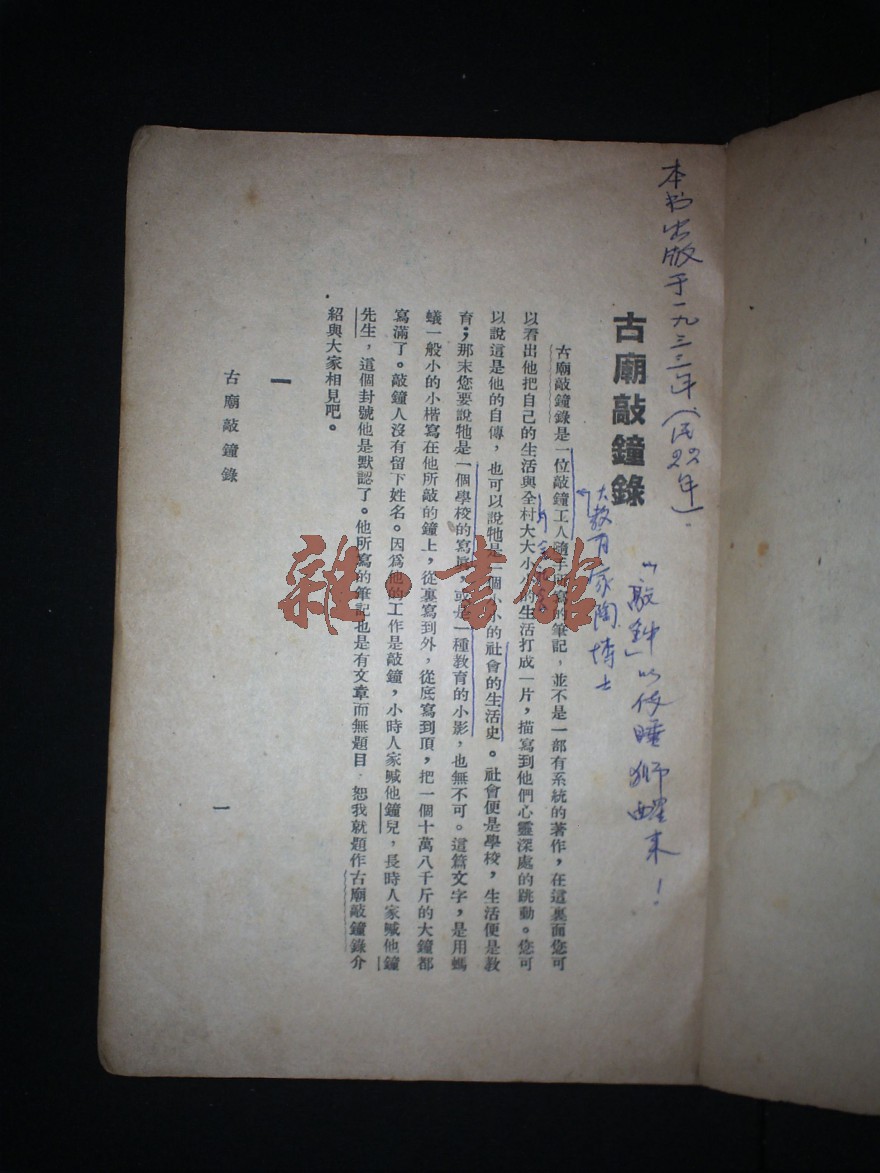 本书出版于一九三三年(民22年).
古廟敲鐘錄
"敲鈡"以使睡狮醒来!
大教育家陶博士
古廟敲鐘錄是一位敲鐘工人隨手所寫的筆記,並不是一部有系統的著作,在這裏面您可
以看出他把自己的生活與全村大大小小的生活打成一片,描寫到他們心靈深處的跳動。您可
以說這是他的自傳,也可以說牠是一個小小的社會的生活史。社會便是學校,生活便是教
育;那末您要說牠是一個學校的寫真,或是一種教育的小影,也無不可。這篇文字,是用螞
蟻一般小的小楷寫在他所敲的鐘上,從裏寫到外,從底寫到頂,把一個十萬八千斤的大鐘都
寫滿了。敲鐘人沒有留下姓名。因爲他的工作是敲鐘,小時人家喊他鐘兒,長時人家喊他鐘
先生,這個封號他是默認了。他所寫的筆記也是有文章而無題目,恕我就題作古廟敲鐘錄介
紹與大家相見吧。
一
古廟敲鐘錄
一
雜·書館